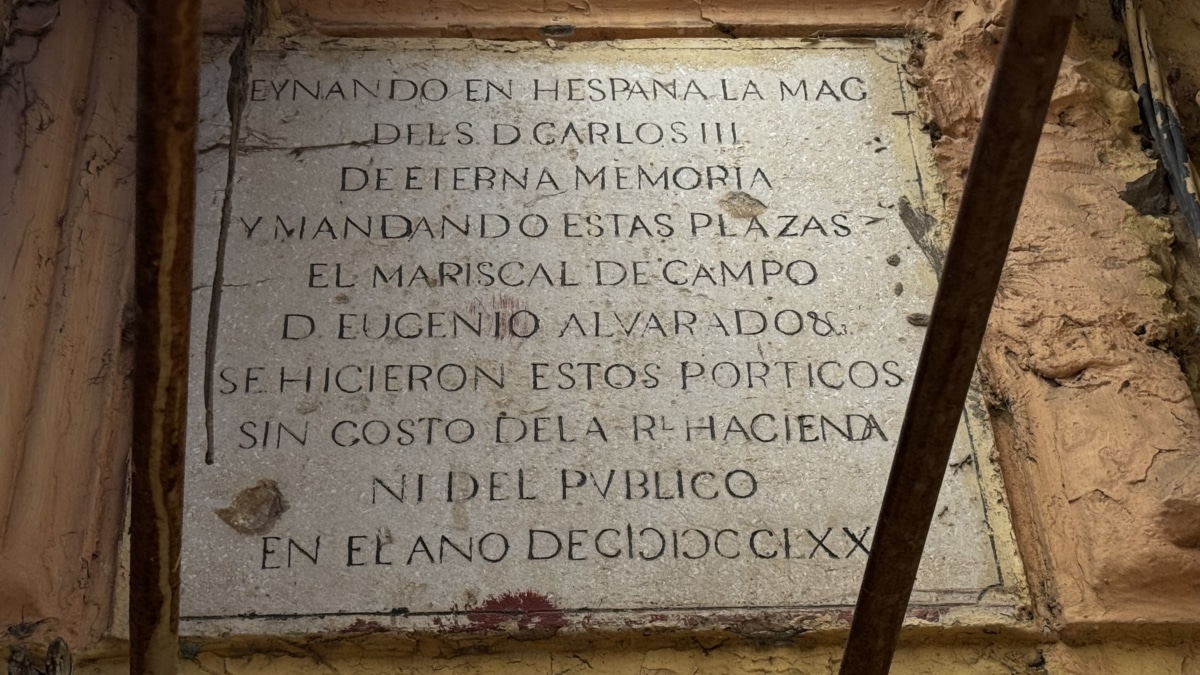 EYNANDO EN HESPANA LA MAG
DEL S. D. CARLOS III.
DE ETERNA MEMORIA
Y MANDANDO ESTAS PLAZAS
EL MARISCAL DE CAMPO
D. EUGENIO ALVARADO &.
SE HICIERON ESTOS PORTICOS
SIN COSTO DE LA RL HACIENDA
NI DEL PVBLICO
EN EL ANO DE CIƆIƆCCLXX